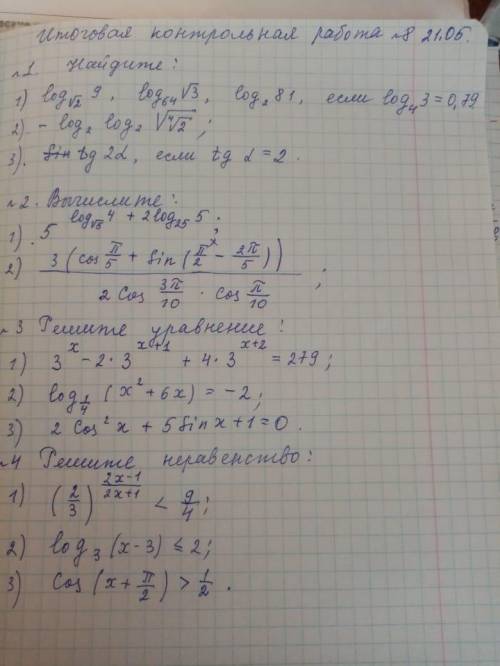 Итоговая контрольная работа №8 21.05.
№1 Найдите:
1) log_{√2} 9, log_{64} √3, log_2 81, если log_4 3 = 0,79
2) - log_2 log_2 √(∜2);
3). tg 2α, если tg α = 2.
№2. Вычислите:
1). 5^{log_{√5} 4 + 2 log_{25} 5};
2) 3 (cos π/5 + sin (π/2 - 2π/5)) / (2 cos 3π/10 · cos π/10);
№3 Решите уравнение:
1) 3^x - 2·3^{x+1} + 4·3^{x+2} = 279;
2) log_{1/4} (x² + 6x) = -2;
3) 2 cos² x + 5 sin x + 1 = 0.
№4 Решите неравенство:
1) (2/3)^{(2x-1)/(2x+1)} < 9/4;
2) log_3 (x-3) ≤ 2;
3) cos (x + π/2) > 1/2.